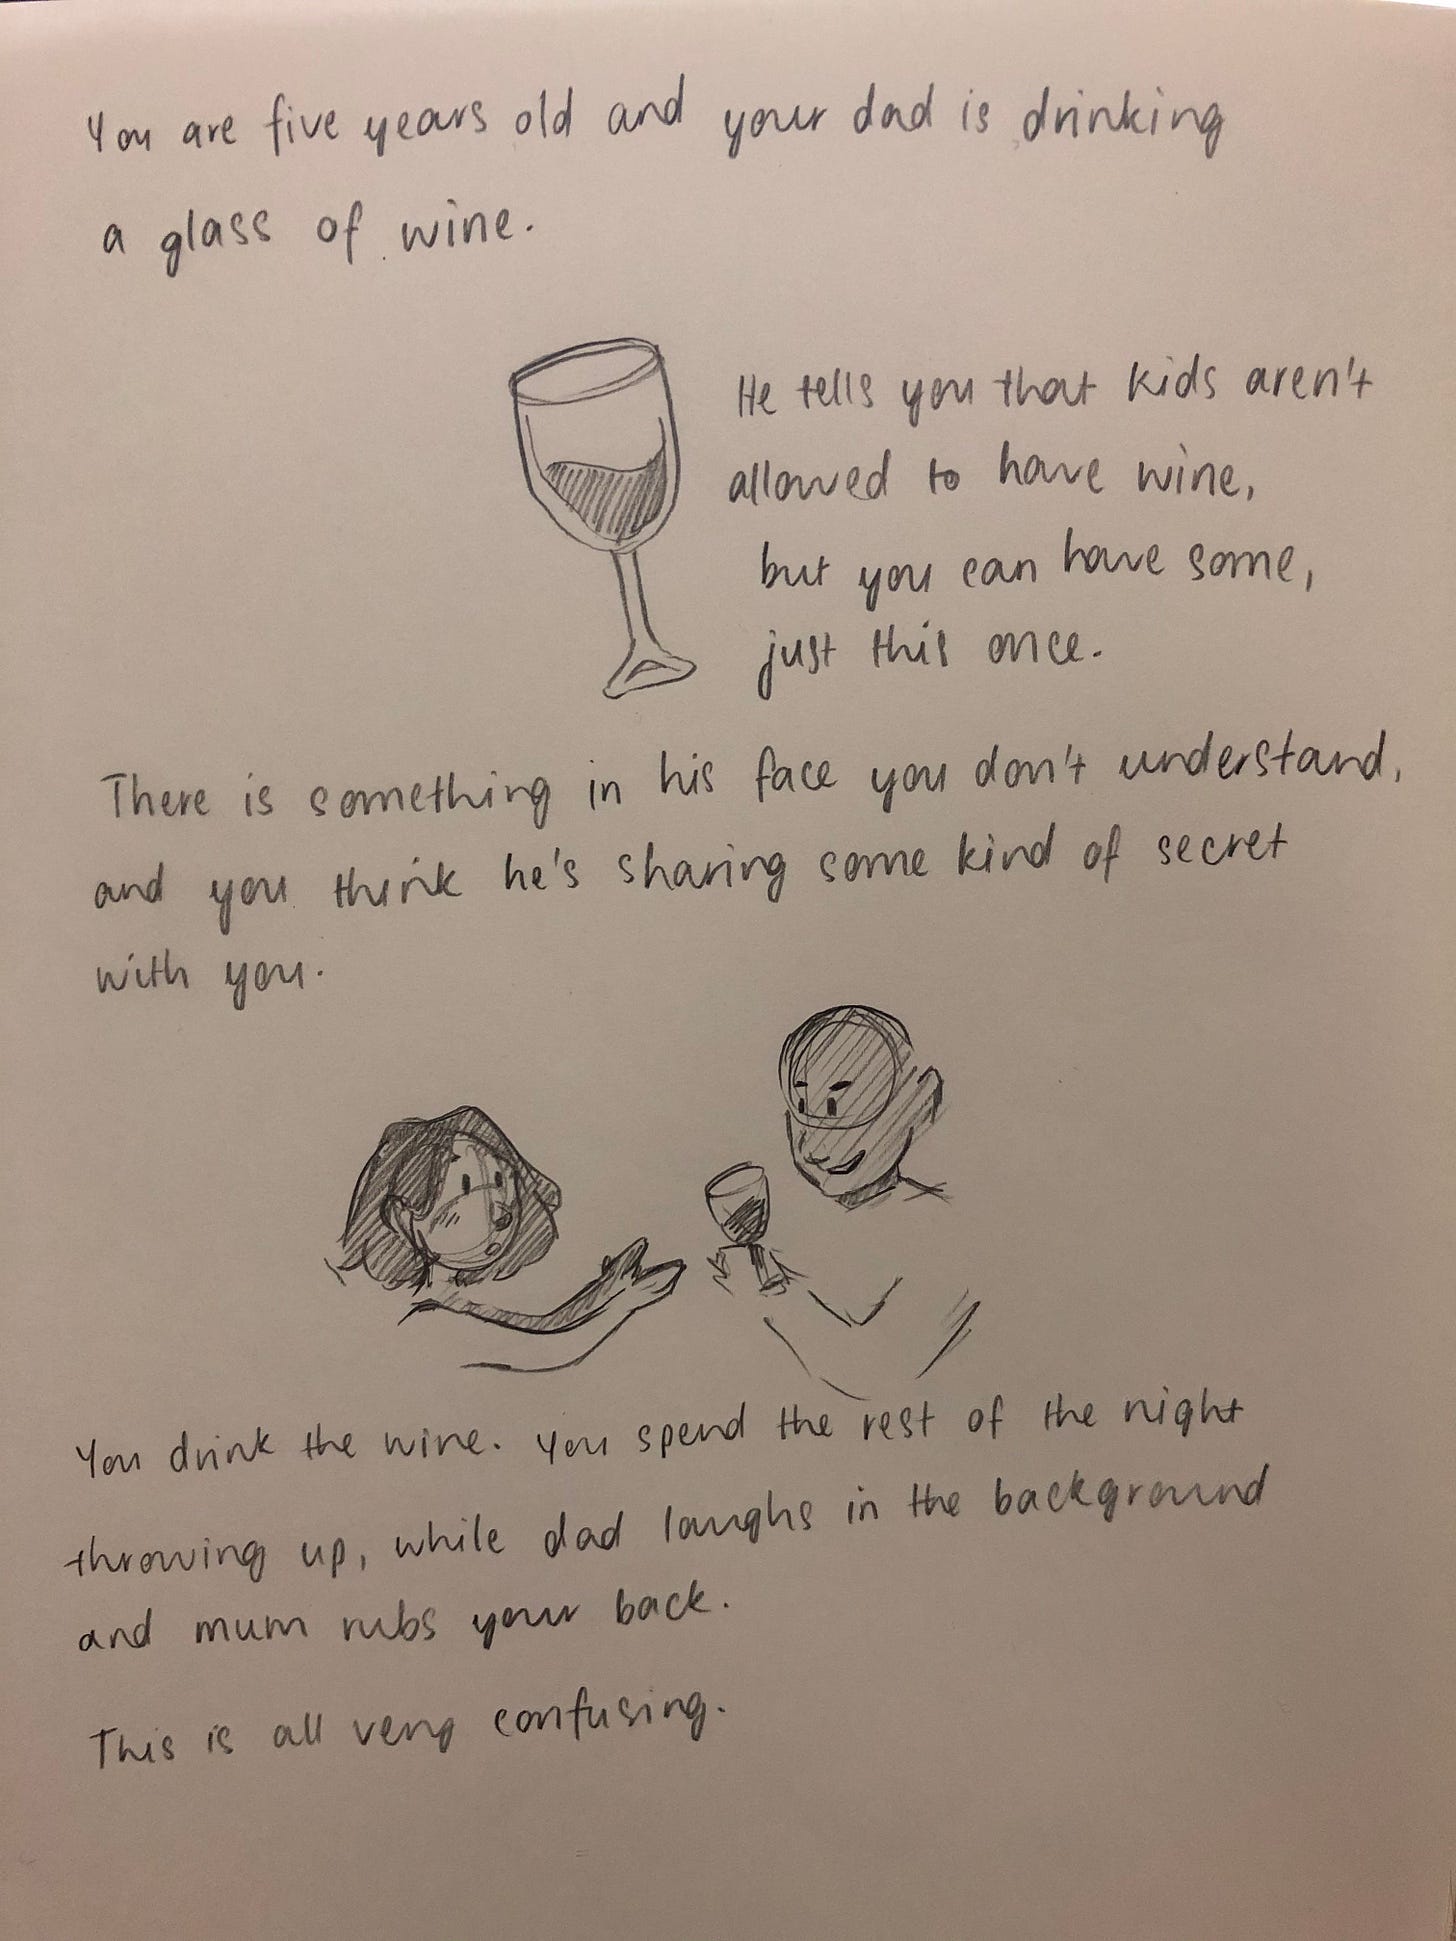 You are five years old and your dad is drinking
a glass of wine.
He tells you that kids aren't
allowed to have wine,
but you can have some,
just this once.
There is something in his face you don't understand,
and you think he's sharing some kind of secret
with you.
You drink the wine. You spend the rest of the night
throwing up, while dad laughs in the background
and mum rubs your back.
This is all very confusing.